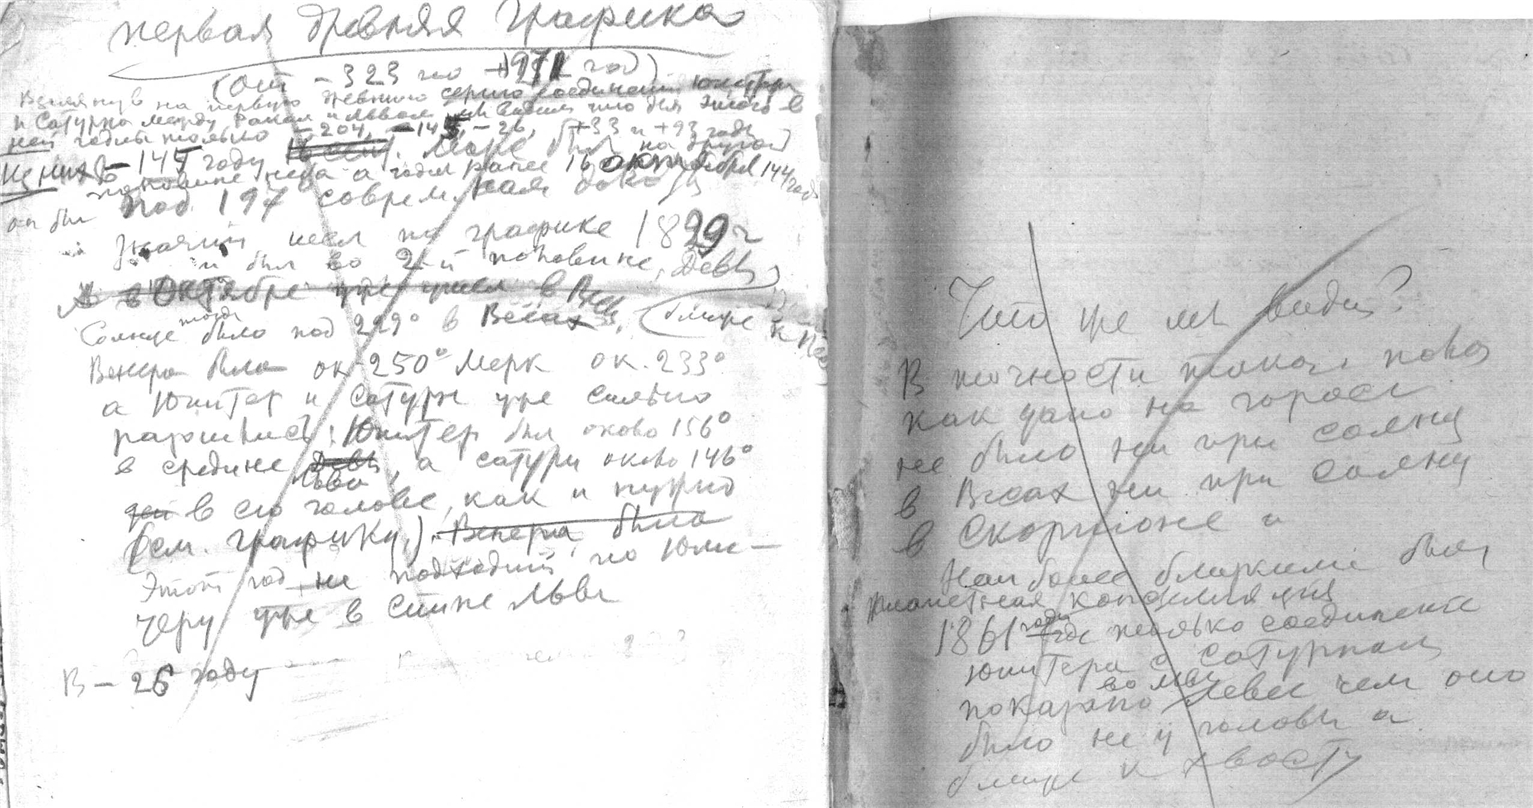 первая древняя графика
(От – 323 по +1971 год)
Взглянув на первую древнюю серию соединений Юпитера
и Сатурна между Раком и Львом мы видим что для этого в
ней годны только – 204, – 145, – 26, +33 и +93 годы
Из них в – 145 году Марс был на другой
половине неба а годом ранее 16 октября 144 года
он был под 197
Значит, шел по графике 1899 г
и был во 2-й половине Девы
в Октябре уже ушел в Весы
Солнце тогда было под 229° в Весах, (ближе к
Венера была ок 250° Мерк ок. 233°
а Юпитер и Сатурн уже сильно
разошлись, Юпитер был около 156°
в средине Девы Льва, а сатурн около 146°
в его голове, как и нужно
(см. графику). Венера была
Этот год не подходит по Юпи-
теру уже в спине Льва
В – 26 году
Что же мы видим?
В точности такого,
как дано на
не было ни при солнц
в Весах ни при солнц
в Скорпионе и
Наиболее близкими была
планетная
1861 года где только соединение
Юпитера с Сатурном
показано во Льве левее чем оно
было не у головы а
ближе к хвосту